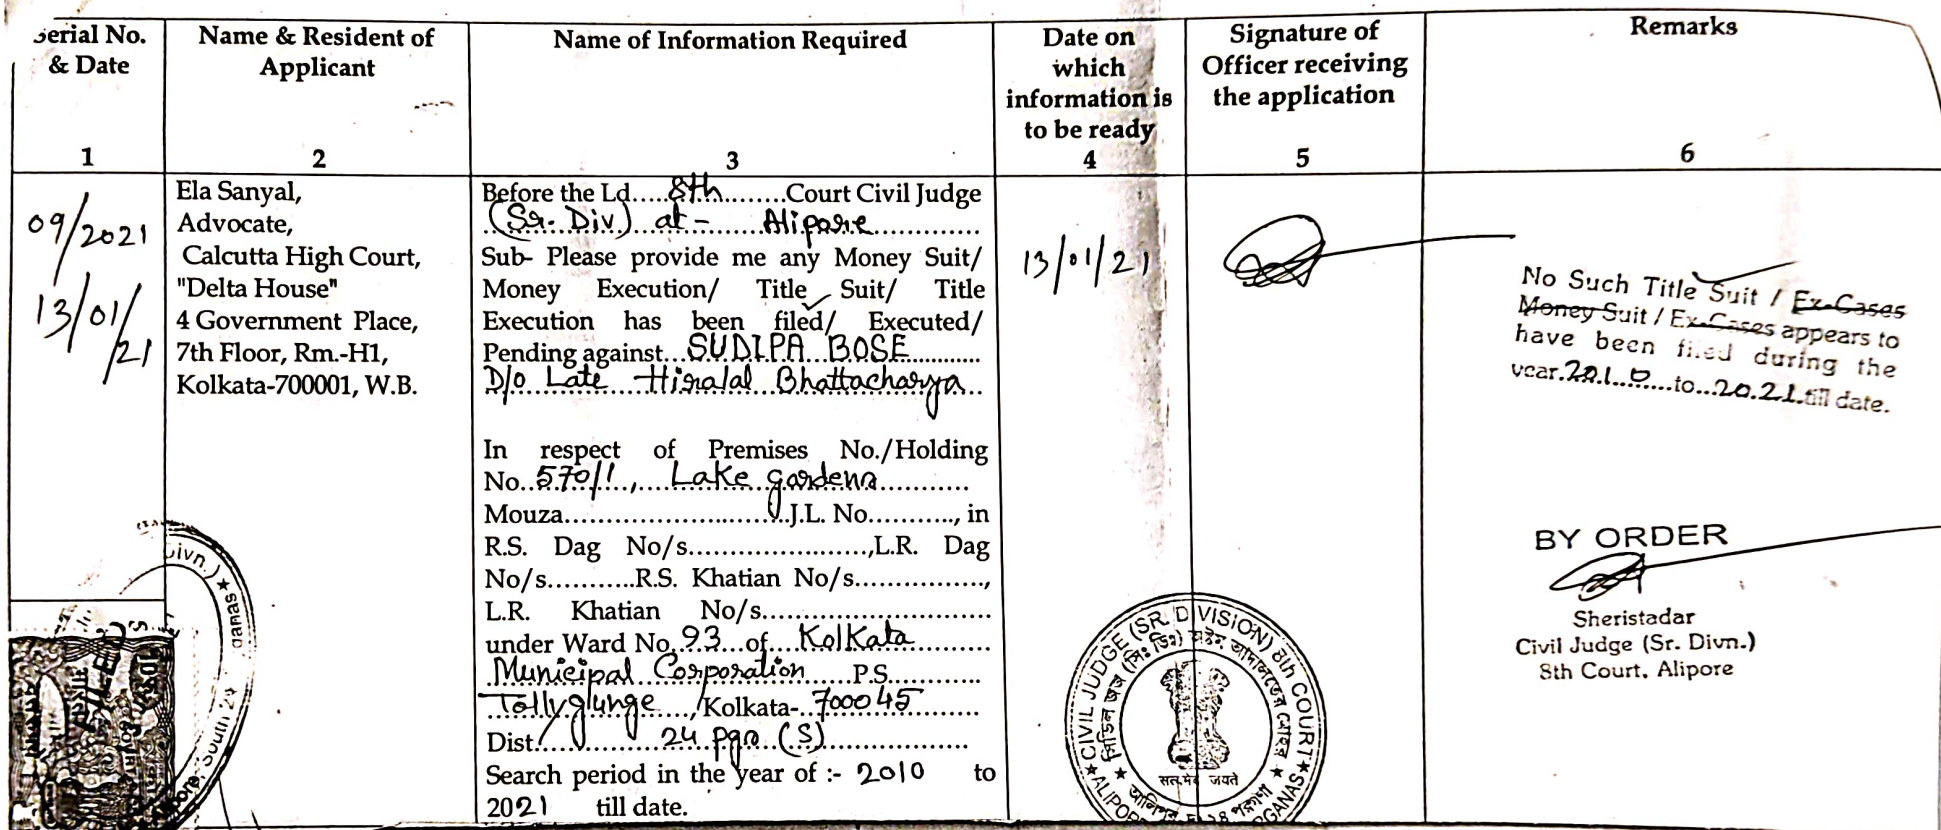 Serial No.
& Date
1
Name & Resident of
Applicant
2
Name of Information Required
3
Date on
which
information is
to be ready
4
Signature of
Officer receiving
the application
5
Remarks
6
09/2021
13/01/
21
Ela Sanyal,
Advocate,
Calcutta High Court,
"Delta House"
4 Government Place,
7th Floor, Rm.-H1,
Kolkata-700001, W.B.
Before the Ld.....8th.........Court Civil Judge
(Sr. Div) at - Alipore
Sub- Please provide me any Money Suit/
Money Execution/ Title Suit/ Title
Execution has been filed/ Executed/
Pending against...SUDIPA BOSE............
D/o Late Hiralal Bhattacharya
In respect of Premises No./Holding
No..570/1,....Lake gardens............
Mouza..........................J.L. No.........., in
R.S. Dag No/s.....................,L.R. Dag
No/s..........R.S. Khatian No/s...............,
L.R. Khatian No/s..........................
under Ward No..93...of...Kolkata
Municipal Corporation P.S.............
Tollygunge ,Kolkata-..700045
Dist.............24 pgs (S)..................
Search period in the year of :- 2010 to
2021 till date.
13/01/21
No Such Title Suit / Ex-Cases
Money Suit / Ex-Cases appears to
have been filed during the
year.2010....to...2021.till date.
BY ORDER
Sheristadar
Civil Judge (Sr. Divn.)
8th Court, Alipore
CIVIL JUDGE (SR. DIVISION) 8th COURT
सत्यमेव जयते
Divn.) ★
South 24